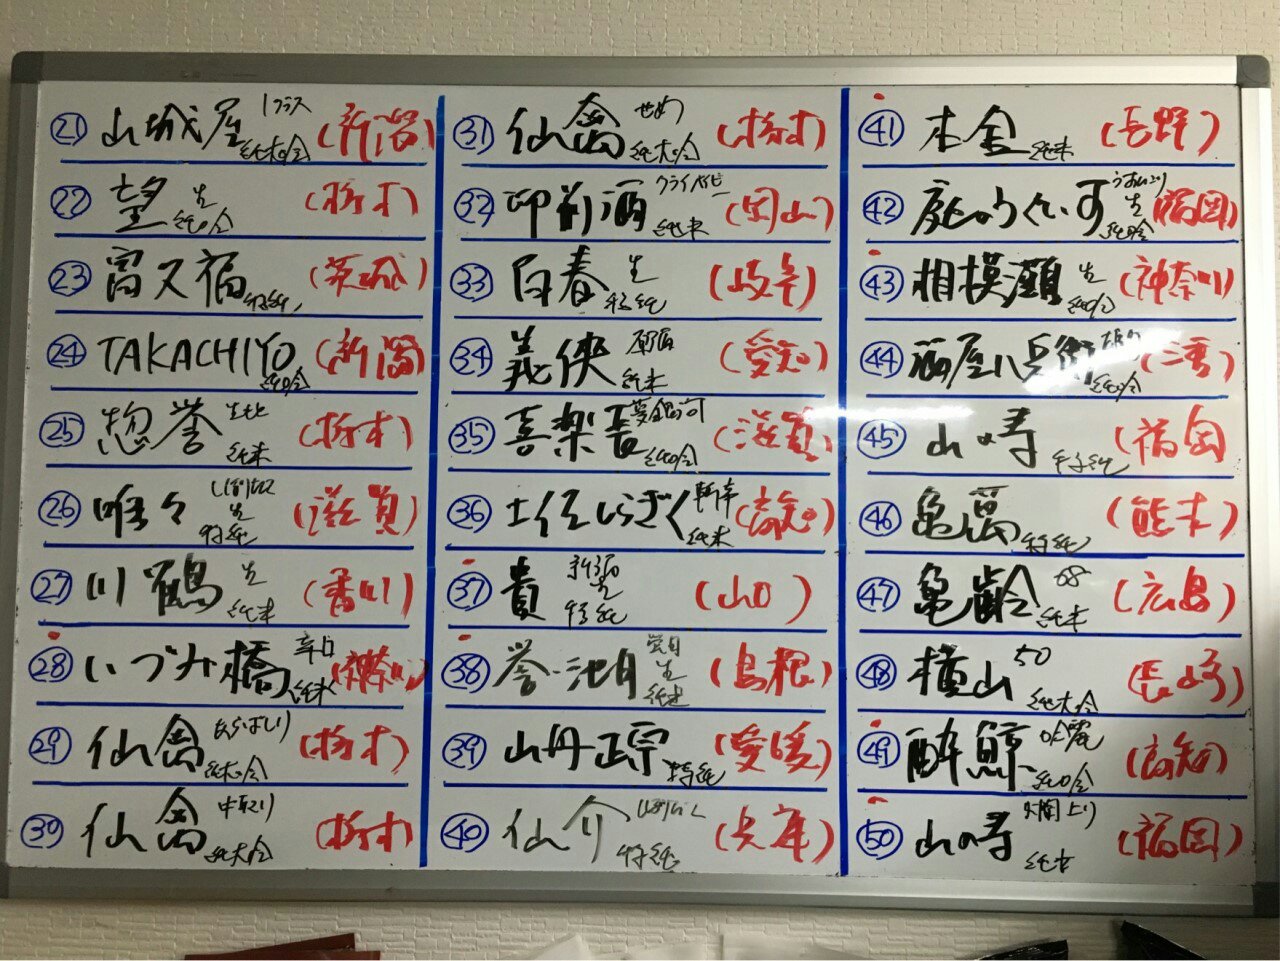 ㉑ 山城屋 1クラス 純大吟 (新潟)
㉒ 望 生 純吟 (栃木)
㉓ 富久福 特純 (茨城)
㉔ TAKACHIYO 純吟 (新潟)
㉕ 惣誉 生酛 純米 (栃木)
㉖ 唯々 しぼりたて 生 特純 (滋賀)
㉗ 川鶴 生 純米 (香川)
㉘ いづみ橋 辛口 純米 (神奈川)
㉙ 仙禽 あらばしり 純大吟 (栃木)
㉚ 仙禽 中取り 純大吟 (栃木)
㉛ 仙禽 せめ 純大吟 (栃木)
㉜ 御前酒 純米 (岡山)
㉝ 百春 生 特純 (岐阜)
㉞ 義侠 原酒 純米 (愛知)
㉟ 喜楽長 純吟 (滋賀)
㊱ 土佐しらぎく 斬辛 純米 (高知)
㊲ 貴 生 特純 (山口)
㊳ 誉池月 生 純米 (島根)
㊴ 山丹正宗 特純 (愛媛)
㊵ 仙介 特純 (兵庫)
㊶ 木舎 純米 (長野)
㊷ 庭のうぐいす うすにごり 生 純吟 (福岡)
㊸ 相模灘 生 純吟 (神奈川)
㊹ 酒屋八兵衛 純吟 (三重)
㊺ 山の寿 特純 (福岡)
㊻ 亀萬 特純 (熊本)
㊼ 亀齢 68 純米 (広島)
㊽ 横山 50 純大吟 (長崎)
㊾ 酔鯨 吟麗 純吟 (高知)
㊿ 山の寿 純米 (福岡)